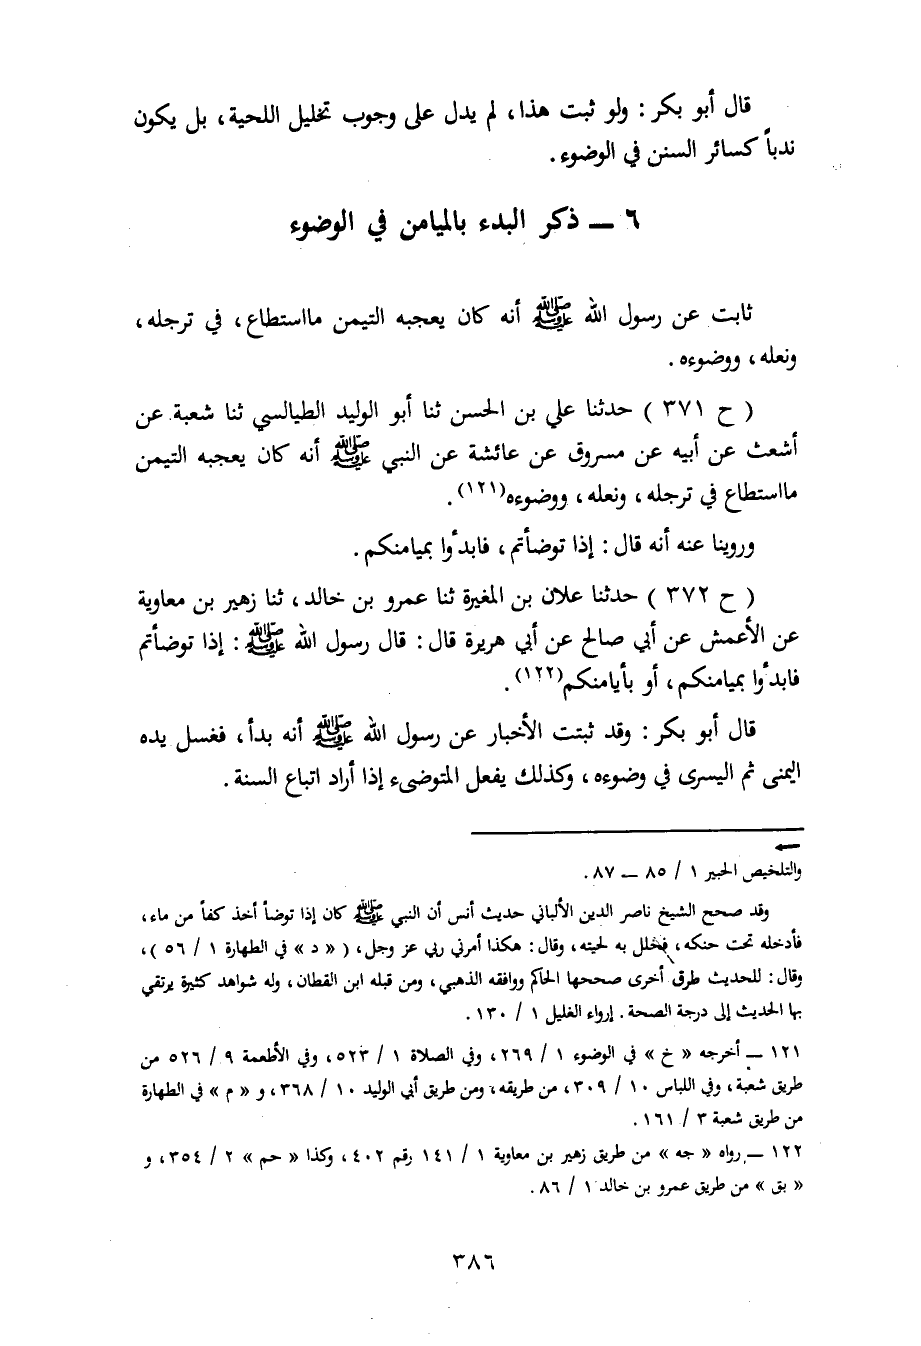 قال أبو بكر : ولو ثبت هذا، لم يدل على وجوب تخليل اللحية، بل يكون
ندباً كسائر السنن في الوضوء.
٦ ــ ذكر البدء بالميامن في الوضوء
ثابت عن رسول الله ﷺ أنه كان يعجبه التيمن مااستطاع، في ترجله،
ونعله، ووضوءه.
( ح ٣٧١ ) حدثنا علي بن الحسن ثنا أبو الوليد الطيالسي ثنا شعبة عن
أشعث عن أبيه عن مسروق عن عائشة عن النبي ﷺ أنه كان يعجبه التيمن
مااستطاع في ترجله، ونعله، ووضوءه(١٢١).
وروينا عنه أنه قال: إذا توضأتم، فابدأوا بميامنكم.
( ح ٣٧٢ ) حدثنا علان بن المغيرة ثنا عمرو بن خالد، ثنا زهير بن معاوية
عن الأعمش عن أبي صالح عن أبي هريرة قال: قال رسول الله ﷺ: إذا توضأتم
فابدأوا بميامنكم، أو بأيامنكم(١٢٢).
قال أبو بكر: وقد ثبتت الأخبار عن رسول الله ﷺ أنه بدأ، فغسل يده
اليمنى ثم اليسرى في وضوءه، وكذلك يفعل المتوضىء إذا أراد اتباع السنة.
والتلخيص الحبير ١ / ٨٥ ــ ٨٧.
وقد صحح الشيخ ناصر الدين الألباني حديث أنس أن النبي ﷺ كان إذا توضأ أخذ كفاً من ماء،
فأدخله تحت حنكه، فخلل به لحيته، وقال: هكذا أمرني ربي عز وجل، ( « د » في الطهارة ١ / ٥٦ )،
وقال: للحديث طرق أخرى صححها الحاكم ووافقه الذهبي، ومن قبله ابن القطان، وله شواهد كثيرة يرتقي
بها الحديث إلى درجة الصحة. إرواء الغليل ١ / ١٣٠.
١٢١ ــ أخرجه « خ » في الوضوء ١ / ٢٦٩، وفي الصلاة ١ / ٥٢٣، وفي الأطعمة ٩ / ٥٢٦ من
طريق شعبة، وفي اللباس ١٠ / ٣٠٩، من طريقه، ومن طريق أبي الوليد ١٠ / ٣٦٨، و « م » في الطهارة
من طريق شعبة ٣ / ١٦١.
١٢٢ ــ رواه « جه » من طريق زهير بن معاوية ١ / ١٤١ رقم ٤٠٢، وكذا « حم » ٢ / ٣٥٤، و
« بق » من طريق عمرو بن خالد ١ / ٨٦.
٣٨٦